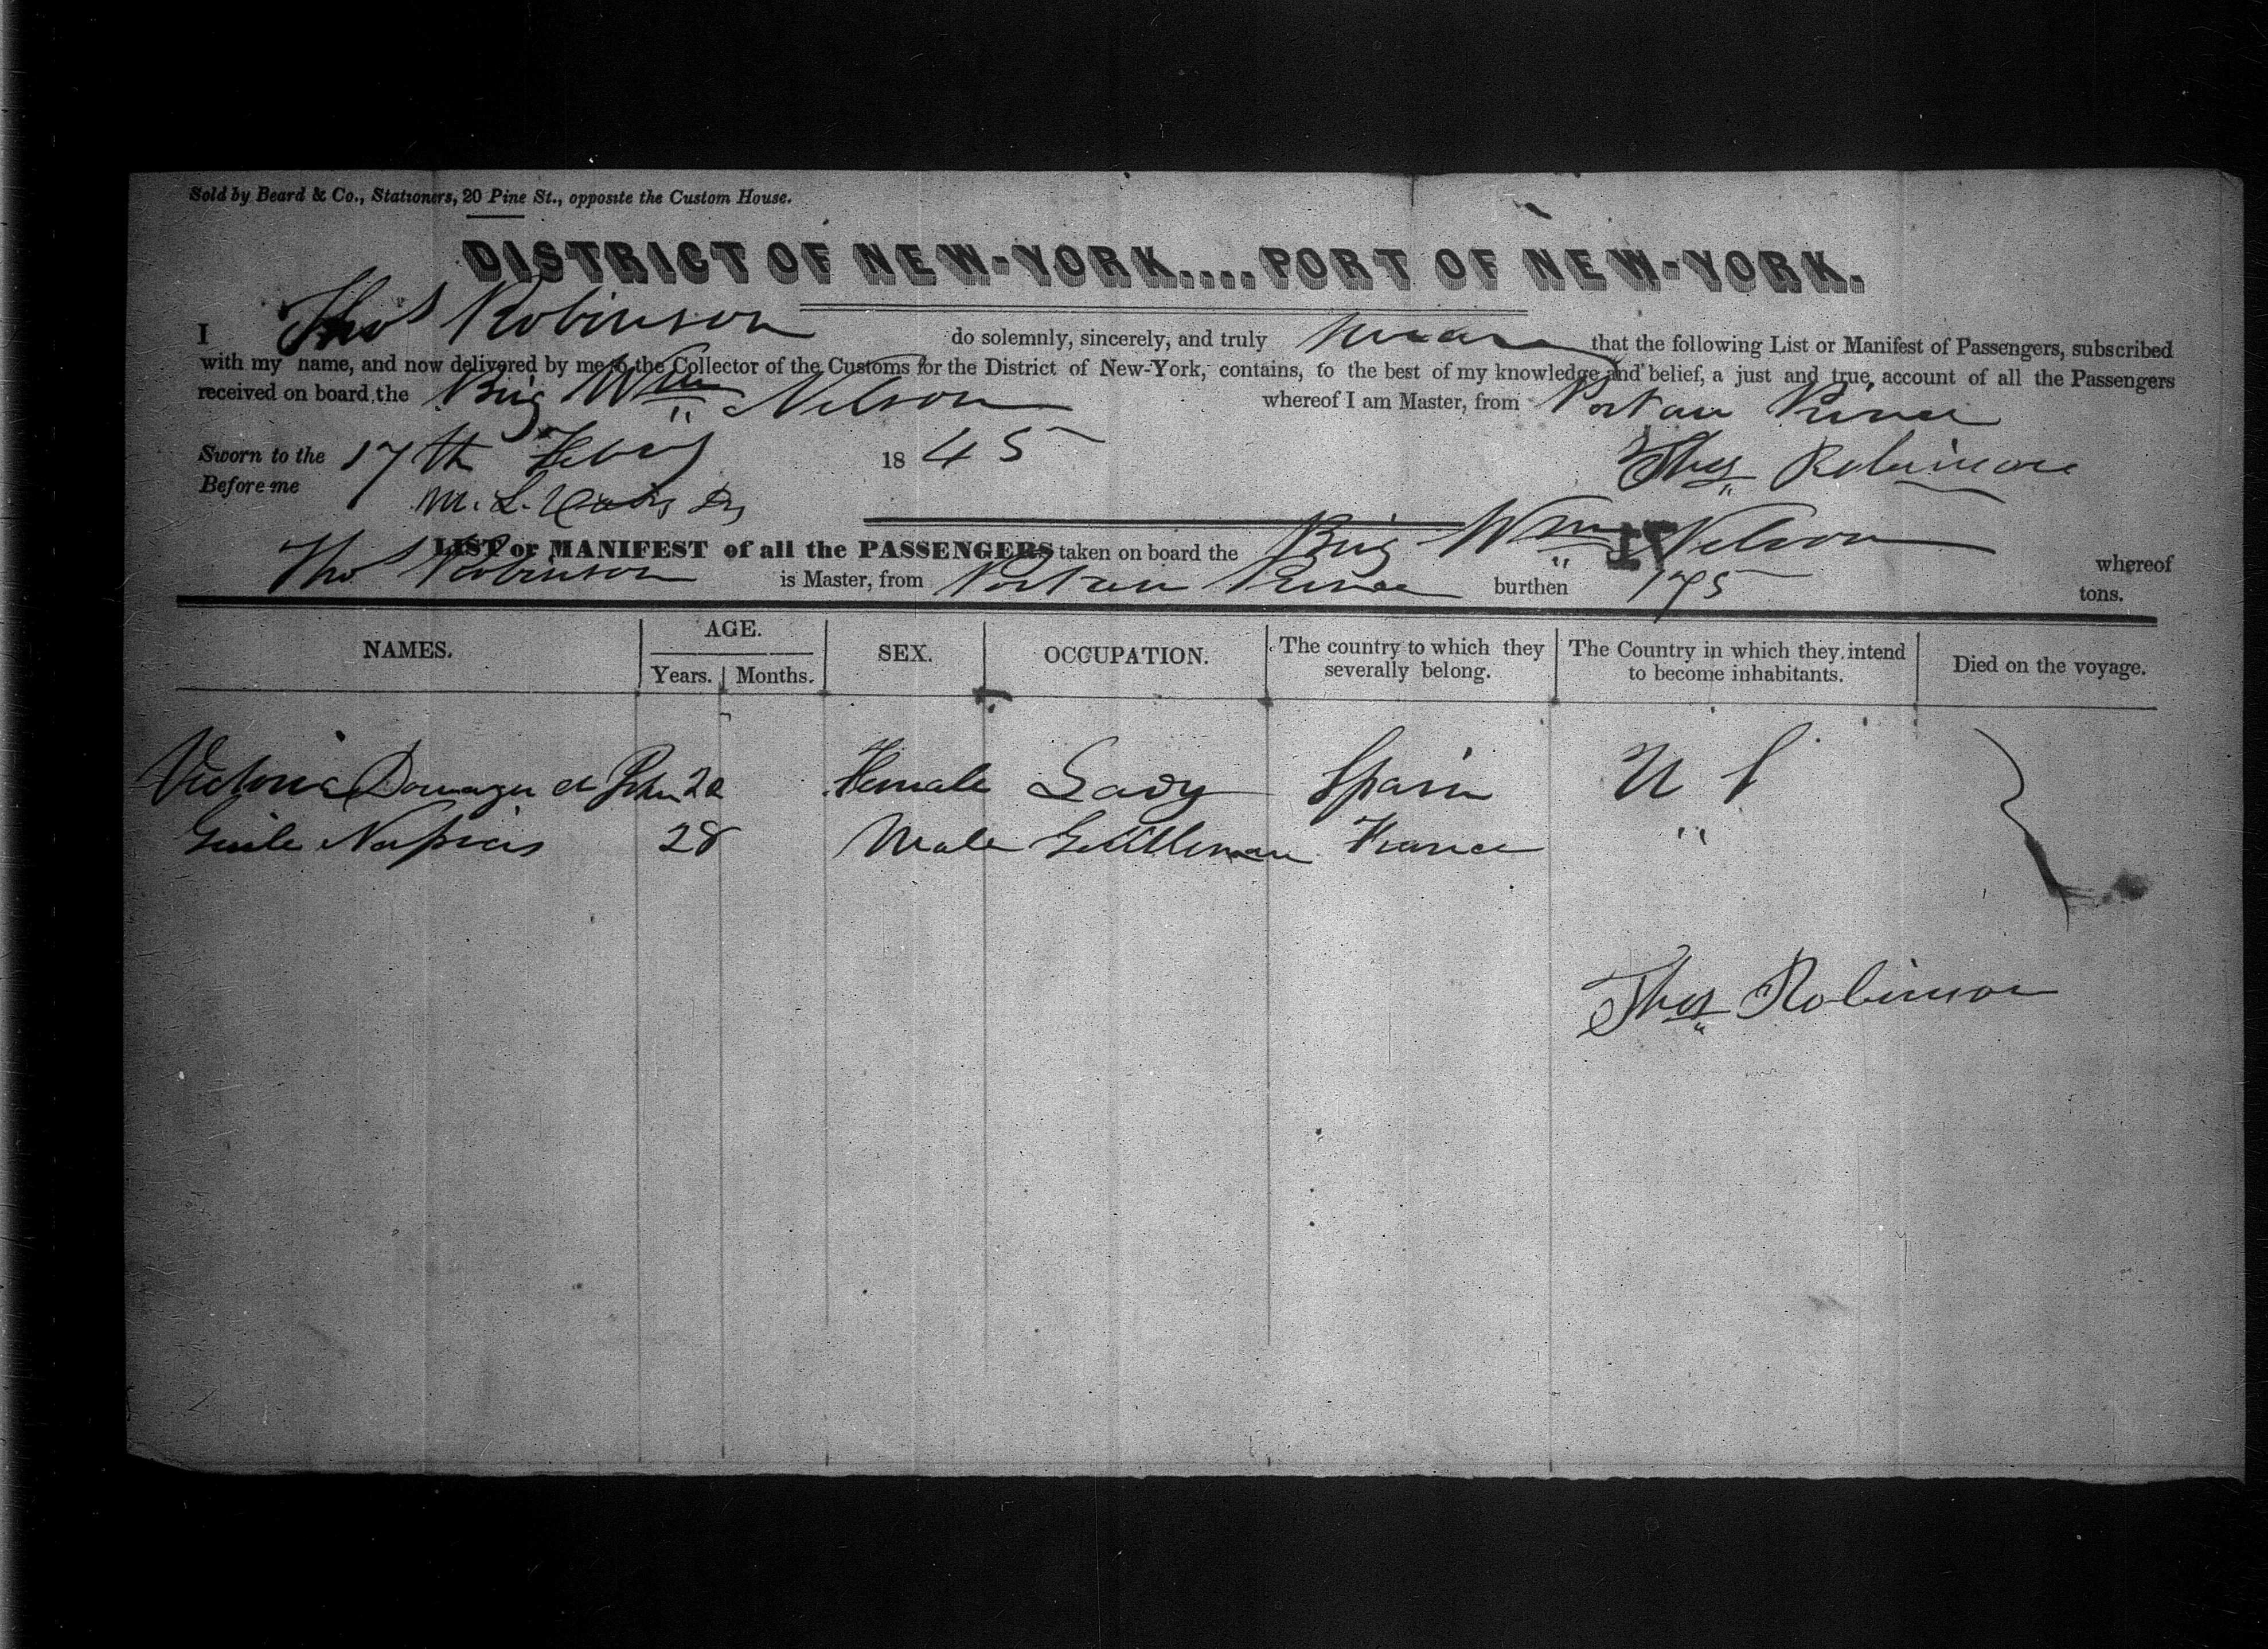 Sold by Beard & Co., Stationers, 20 Pine St., opposite the Custom House.
DISTRICT OF NEW-YORK....PORT OF NEW-YORK.
I Thos Robinson do solemnly, sincerely, and truly swear that the following List or Manifest of Passengers, subscribed
with my name, and now delivered by me to the Collector of the Customs for the District of New-York, contains, to the best of my knowledge and belief, a just and true account of all the Passengers
received on board the Brig Wm Nelson whereof I am Master, from Port au Prince
Sworn to the 17th Feby 1845 Thos Robinson
Before me M. L.
LIST or MANIFEST of all the PASSENGERS taken on board the Brig Wm Nelson whereof
17
Thos Robinson is Master, from Port au Prince burthen 175 tons.
NAMES. AGE. SEX. OCCUPATION. The country to which they severally belong. The Country in which they intend to become inhabitants. Died on the voyage.
Years. Months.
Victoria Female Lady Spain U S
28 Male Gentleman France "
Thos Robinson